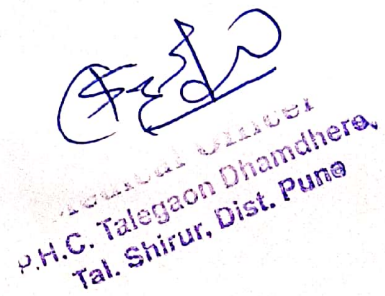 Medical Officer
P.H.C. Talegaon Dhamdhere,
Tal. Shirur, Dist. Pune